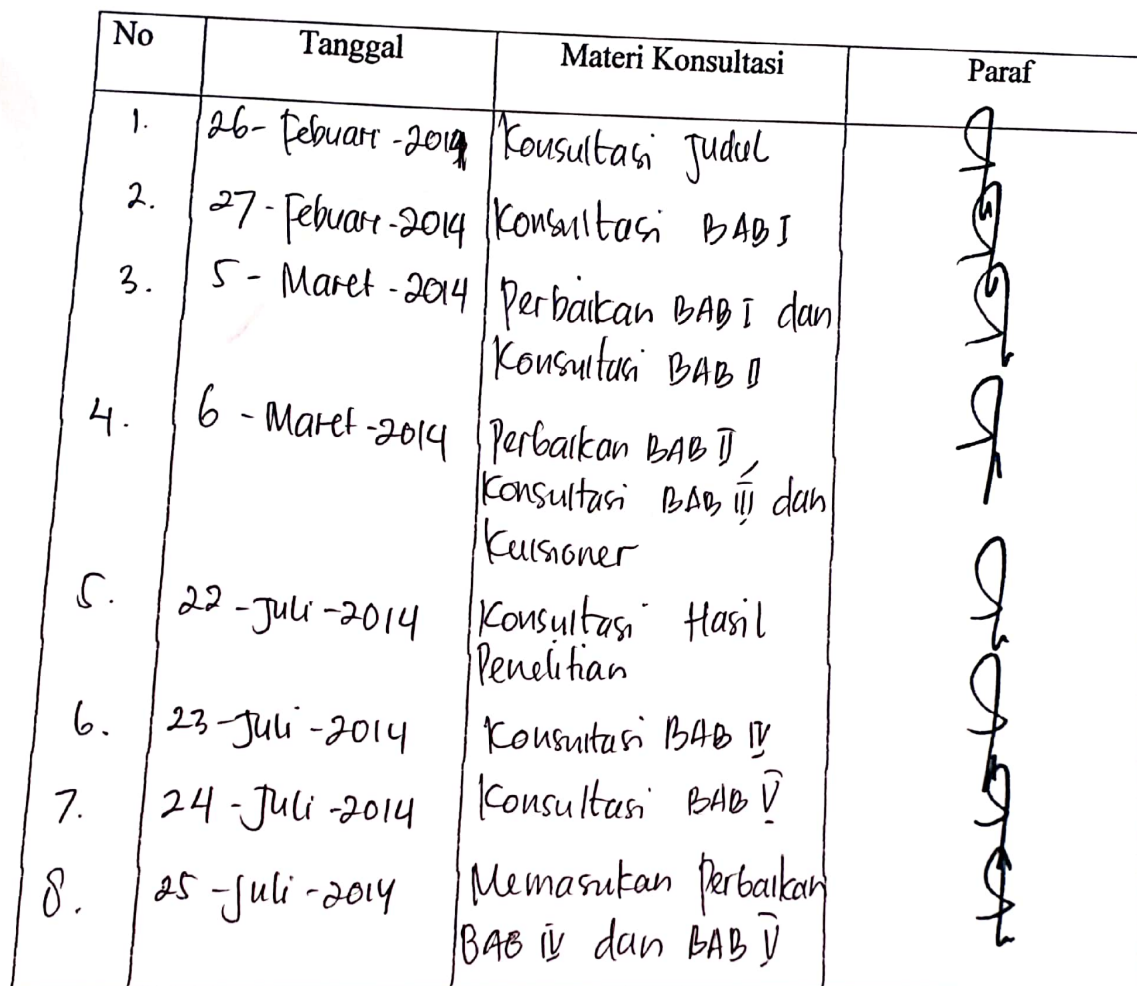 No Tanggal Materi Konsultasi Paraf
1. 26- Febuari -2014 Konsultasi Judul
2. 27- Febuari -2014 Konsultasi BAB I
3. 5 - Maret -2014 Perbaikan BAB I dan
Konsultasi BAB II
4. 6 - Maret -2014 Perbaikan BAB II,
Konsultasi BAB III dan
Kuisioner
5. 22 -Juli -2014 Konsultasi Hasil
Penelitian
6. 23 -Juli -2014 Konsultasi BAB IV
7. 24 -Juli -2014 Konsultasi BAB V
8. 25 -Juli -2014 Memasukan Perbaikan
BAB IV dan BAB V